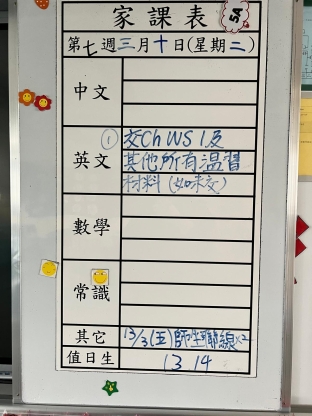 家課表
5A
第七週三月十日(星期二)
中文
英文
① 交Ch WS 1及
其他所有溫習
材料(如未交)
數學
常識
其它
13/3(五)師生聯線x2
值日生
13 14